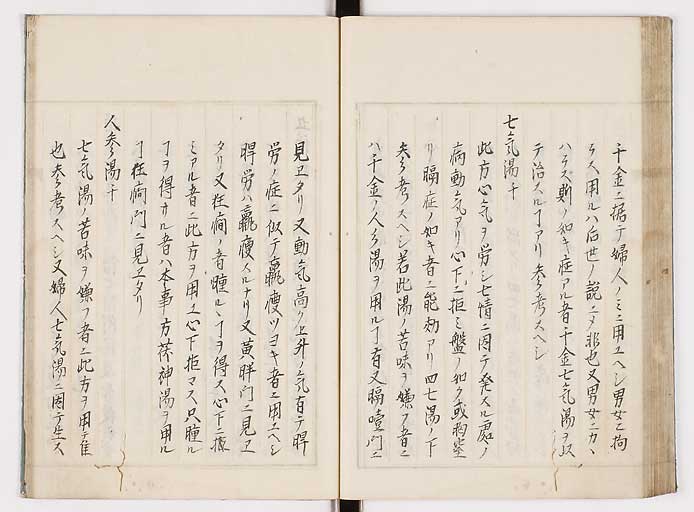 千金ニ据テ婦人ノミニ用ユヘシ男女ニ拘
ラス用ルハ后世ノ説ニメ非也又男女ニカヽ
ハラス斯ノ如キ症アル者千金七気湯ヲ以
テ治スルヿアリ参考スヘシ
七気湯千
此方心気ヲ労シ七情ニ因テ発スル処ノ
病動気アリ心下ニ拒ミ盤ノ如ク或
リ膈症ノ如キ者ニ能効アリ四七湯ノ下
参考スヘシ若此湯ノ苦味ヲ嫌フ者ニ
ハ千金ノ人参湯ヲ用ルヿ有又膈噎門ニ
見ヱタリ又動気高ク上升ノ気有テ
労ノ症ニ似テ羸痩ツヨキ者ニ用ユヘシ
労ハ羸痩スルナリ又黄胖門ニ見ヱ
タリ又狂癇ノ者瞳ルヽヿヲ得ス心下ニ
ミアル者ニ此方ヲ用ユ心下拒マス只瞳ル
ヿヲ得サル者ハ本事方茯神湯ヲ用ル
ヿ狂癇門ニ見ヱタリ
人参湯千
七気湯ノ苦味ヲ嫌フ者ニ此方ヲ用テ佳
也参考スヘシ又婦人七気湯ニ因テ生ス